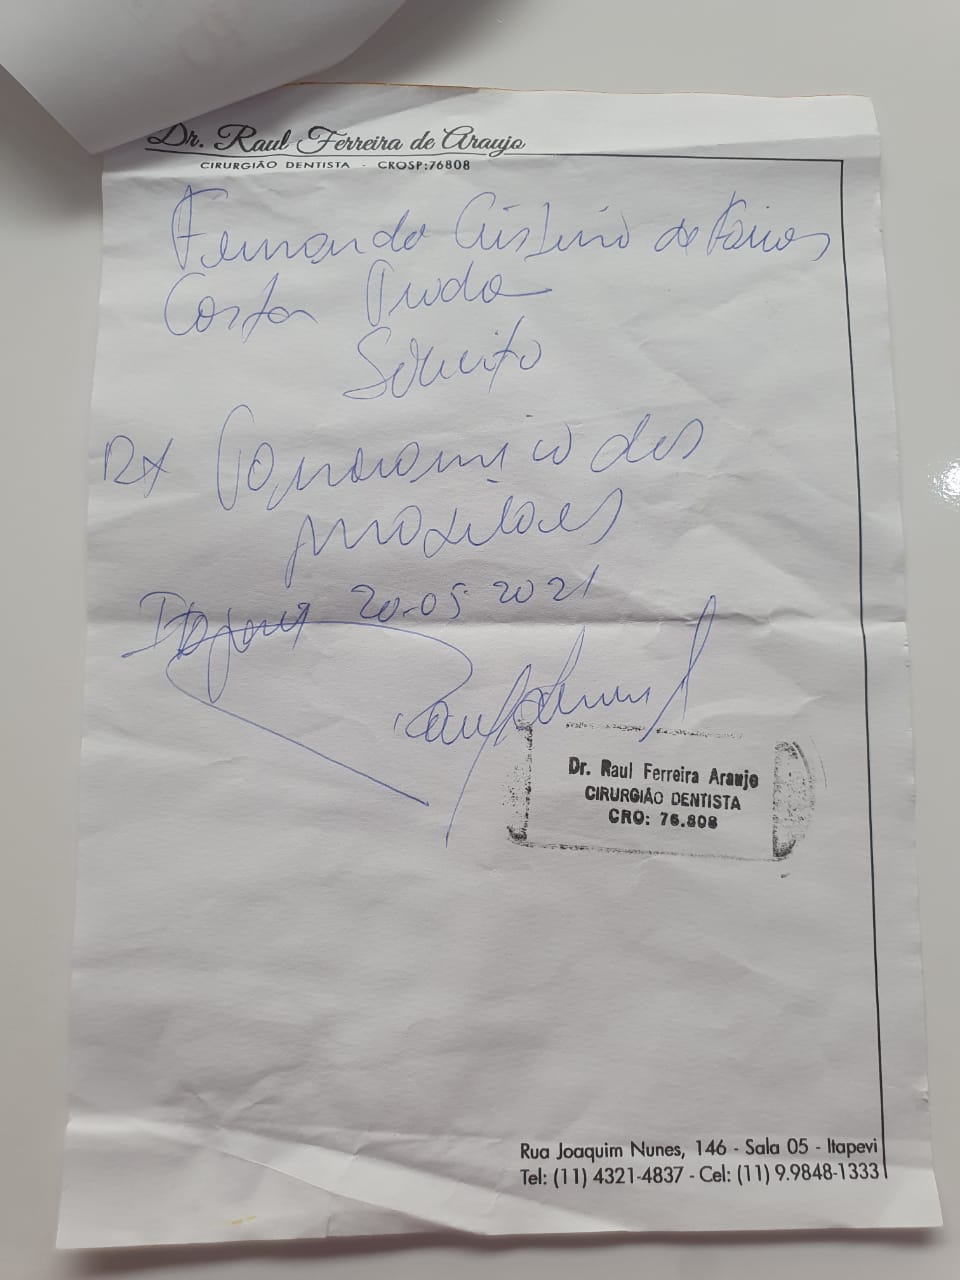 Dr. Raul Ferreira de Araujo
CIRURGIÃO DENTISTA - CROSP:76808
Fernanda Cristina de Farias
Costa Prado
Solicito
RX Panoramico dos
maxilares
20.05 2021
Dr. Raul Ferreira Araujo
CIRURGIÃO DENTISTA
CRO: 76.808
Rua Joaquim Nunes, 146 - Sala 05 - Itapevi
Tel: (11) 4321-4837 - Cel: (11) 9.9848-1333